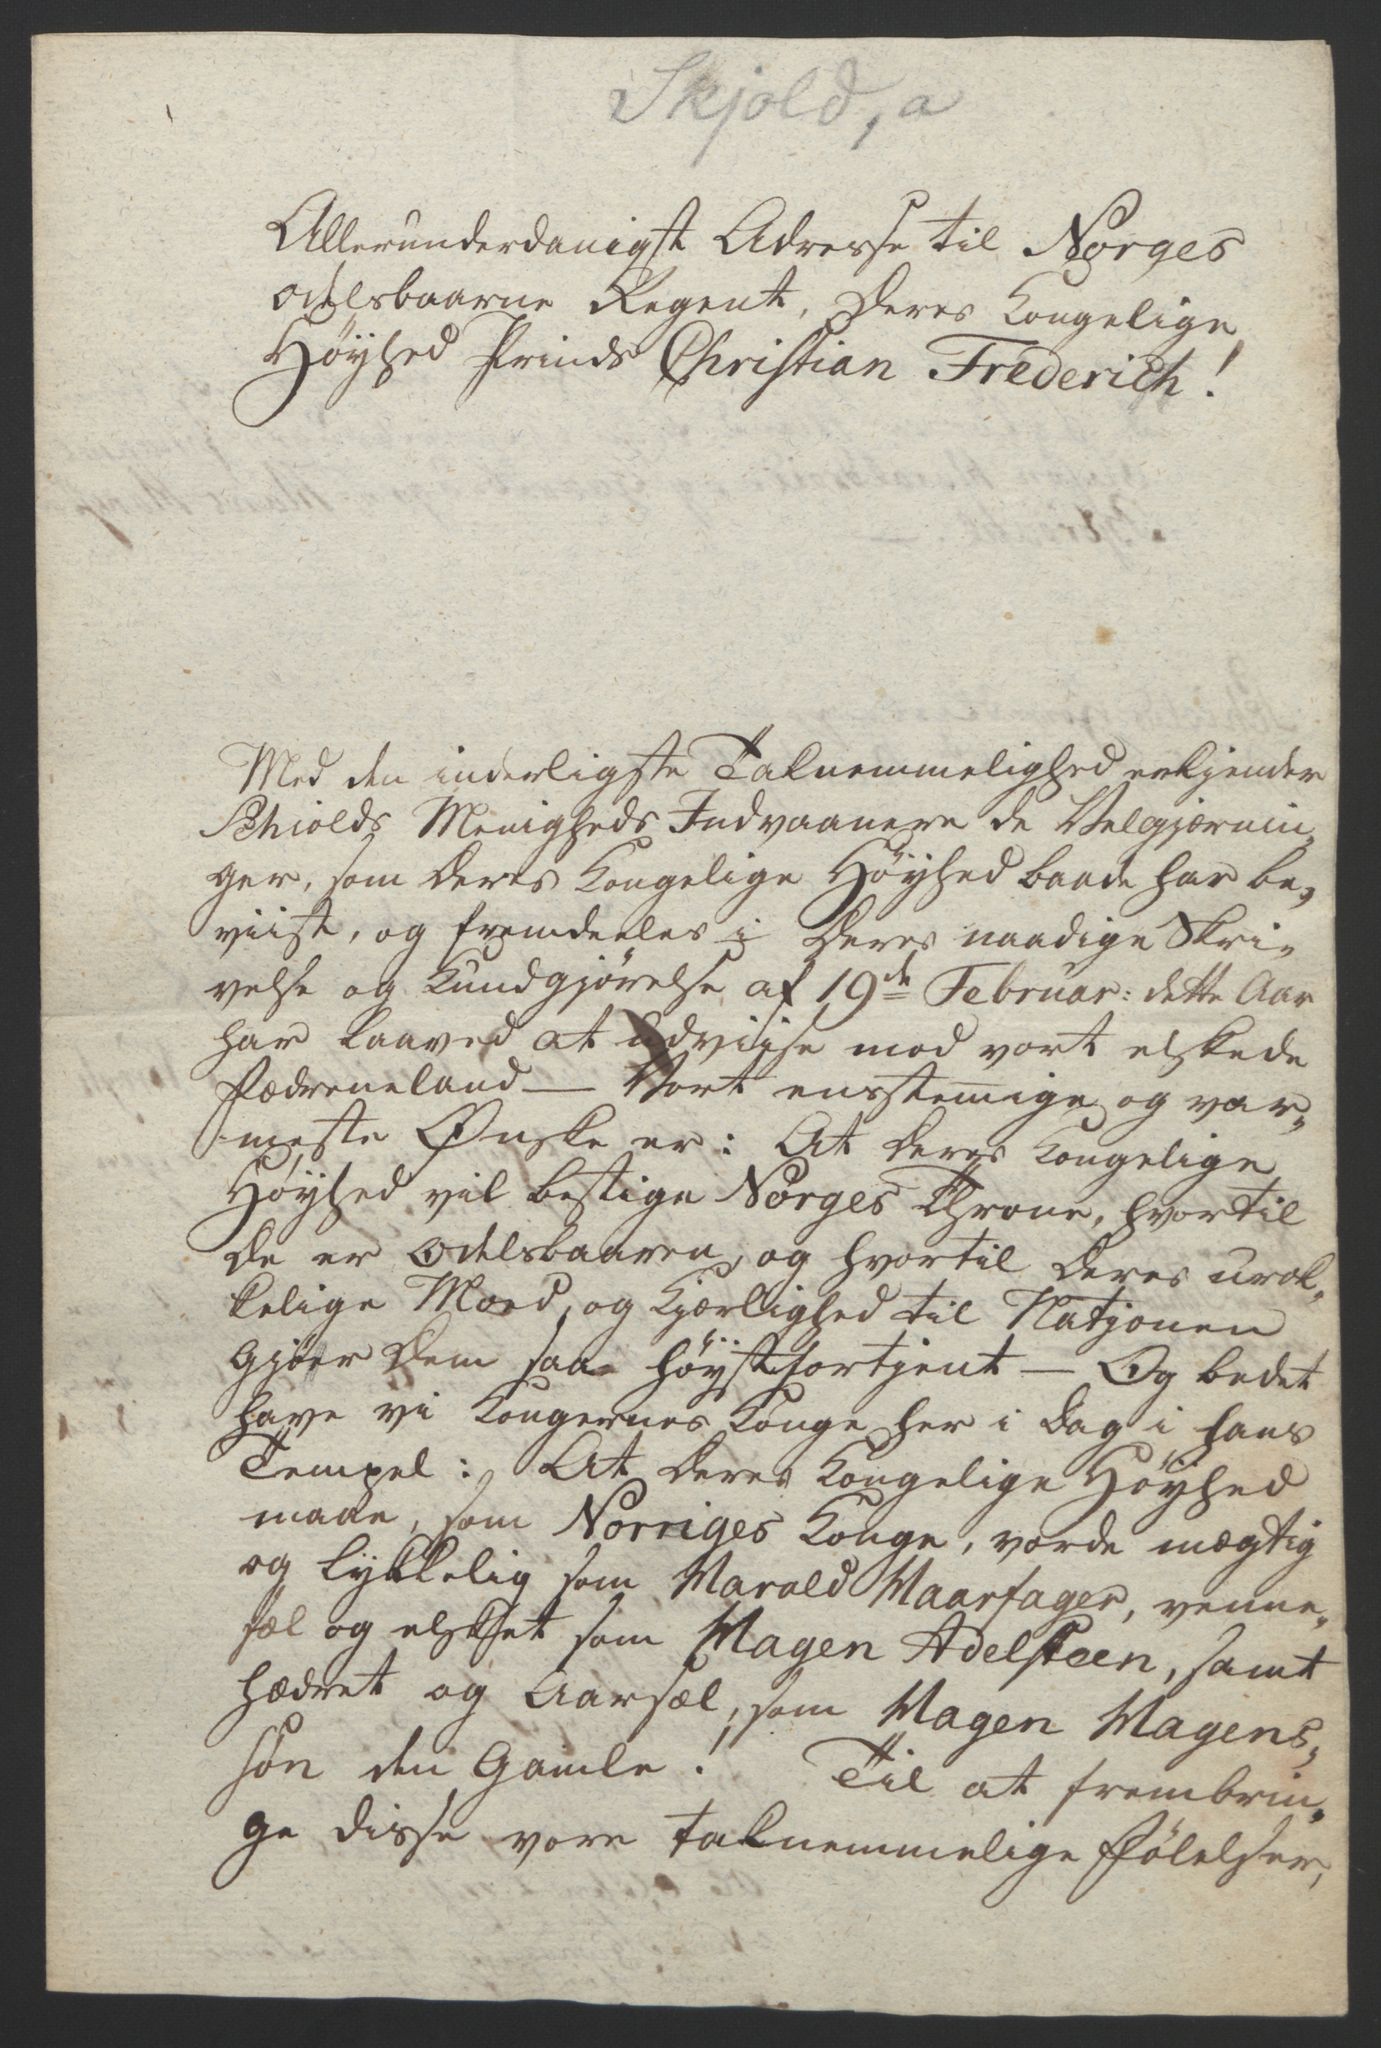 Skjold, a
Allerunderdanigst Adresse til Norges
odelsbaarne Regent, Deres Kongelige
Höyhed Prinds Christian Frederich!
Med den inderligste Taknemmelighed erkjender
Schiolds Menigheds Indvaanere de Velgjærnin„
ger, som Deres Kongelige Höyhed baade har be„
viist, og fremdeeles i Deres naadige Skri„
velse og Kundgjörelse af 19de Februar: dette Aar
har laaved at udviise mod vort elskede
Fædreneland — Vort eenstemige og var„
meste Önske er: At Deres Kongelige
Höyhed vil bestige Norges Throne, hvortil
De er Odelsbaaren, og hvortil Deres urok„
kelige Moed, og Kjærlighed til Natjonen
gjöer Dem saa höystfortjent — Og bedet
have vi Kongernes Konge her i Dag i hans
Tempel: At Deres Kongelige Höyhed
maae, som Norriges Konge, vorde mægtig
og lykkelig som Harald Haarfager, venne„
sæl og elsket som Hagen Adelsteen, samt
hædret og Aarsæl, som Hagen Hagens„
sön den Gamle! Til at frembrin„
ge disse vore taknemmelige Fölelser,